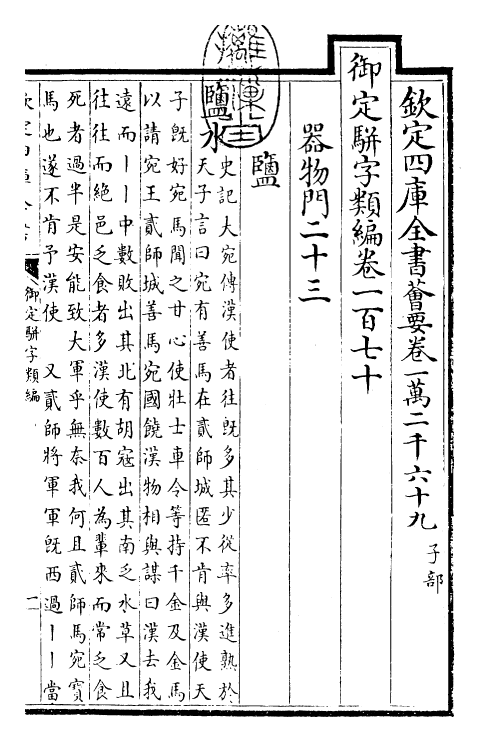 欽定四庫全書薈要卷一萬二千六十九 子部
御定駢字類編卷一百七十
器物門二十三
鹽
鹽水 史記大宛傳漢使者往既多其少從率多進熟於
天子言曰宛有善馬在貳師城匿不肯與漢使天
子既好宛馬聞之甘心使壯士車令等持千金及金馬
以請宛王貳師城善馬宛國饒漢物相與謀曰漢去我
遠而丨丨中數敗出其北有胡寇出其南乏水草又且
往往而絶邑乏食者多漢使數百人為輩來而常乏食
死者過半是安能致大軍乎無奈我何且貳師馬宛寶
馬也遂不肯予漢使 又貳師將軍軍既西過丨丨當
御定駢字類編 一